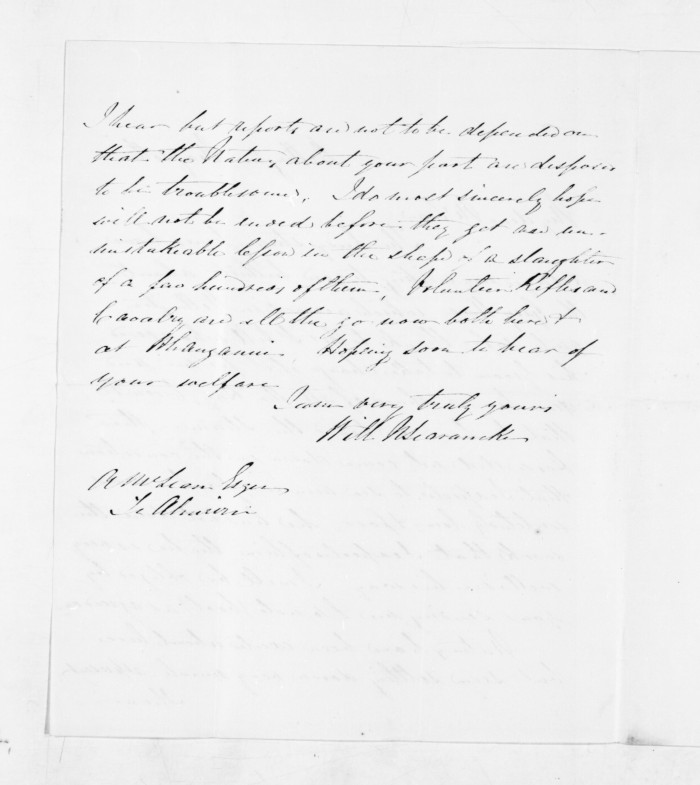 I hear but reports are not to be depended on
that the Natives about your part are disposed
to be troublesome. I do most sincerely hope
will not be ended before they get an un-
mistakeable lesson in the shape of a slaughter
of a few hundreds of them, Volunteer Rifles and
Cavalry are all the go now both here &
at Whanganui. Hoping soon to hear of
your welfare
I am very truly yours
Will N Searancke
McLean Esqre
Te Ahuriri